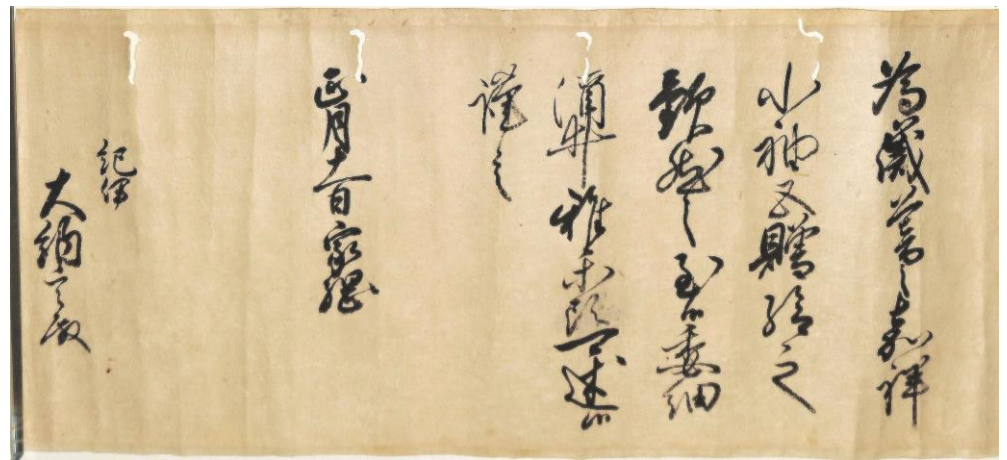 為歳暮之嘉祥
小袖五贈給之
歓然之至候委細
酒井雅楽頭可述候
謹言
正月十一日 家綱
紀伊
大納言殿